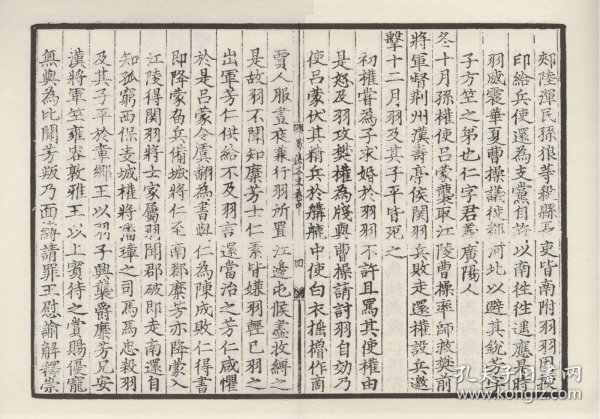 郟陸渾民孫狼等殺縣主吏皆南附羽羽因授
印給兵使還為支黨自許以南往往遙應是時
羽威震華夏曹操議徙都河北以避其銳芳字
子方竺之弟也仁字君義廣陽人
冬十月孫權使呂蒙襲取江陵曹操率師救樊前
將軍督荆州漢壽亭侯關羽兵敗走還權設兵邀
擊十二月羽及其子平皆死之
初權嘗為子求婚於羽羽不許且罵其使權由
是怒及羽攻樊權為牋與曹操請討羽自効乃
使呂蒙伏其精兵於䑽𦪇中使白衣搖櫓作商
四
賈人服晝夜兼行羽所置江邊屯候盡收縛之
是故羽不聞知麋芳士仁素皆嫌羽輕已羽之
出軍芳仁供給不及羽言還當治之芳仁咸懼
於是呂蒙令虞翻為書與仁為陳成敗仁得書
即降蒙留兵備城將仁至南郡麋芳亦降蒙入
江陵得關羽將士家屬羽聞郡破即走南還自
知孤窮西保麥城權將潘璋之司馬馬忠殺羽
及其子平於章鄉王以羽子興襲爵麋芳兄安
漢將軍竺雍容敦雅王以上賓待之賞賜優寵
無與為比聞芳叛乃面縛請罪王慰諭解釋崇
孔夫子旧书网
www.kongfz.com